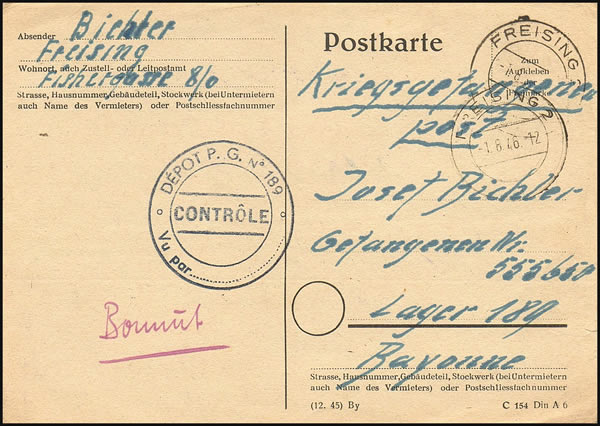 Absender
Richter
Freising
Wohnort, auch Zustell- oder Leitpostamt
Fischergasse 8/0
Strasse, Hausnummer, Gebäudeteil, Stockwerk (bei Untermietern
auch Name des Vermieters) oder Postschliessfachnummer
DÉPOT P. G. N° 189
CONTRÔLE
Vu par
Postkarte
FREISING
Zum
Aufkleben
FREISING 2
-1.6.46. 12
Kriegsgefangenen
post
Josef Richter
Gefangenen Nr.
555650
Lager 189
Bayonne
Strasse, Hausnummer, Gebäudeteil, Stockwerk (bei Untermietern
auch Name des Vermieters) oder Postschliessfachnummer
(12. 45) By
C 154 Din A 6